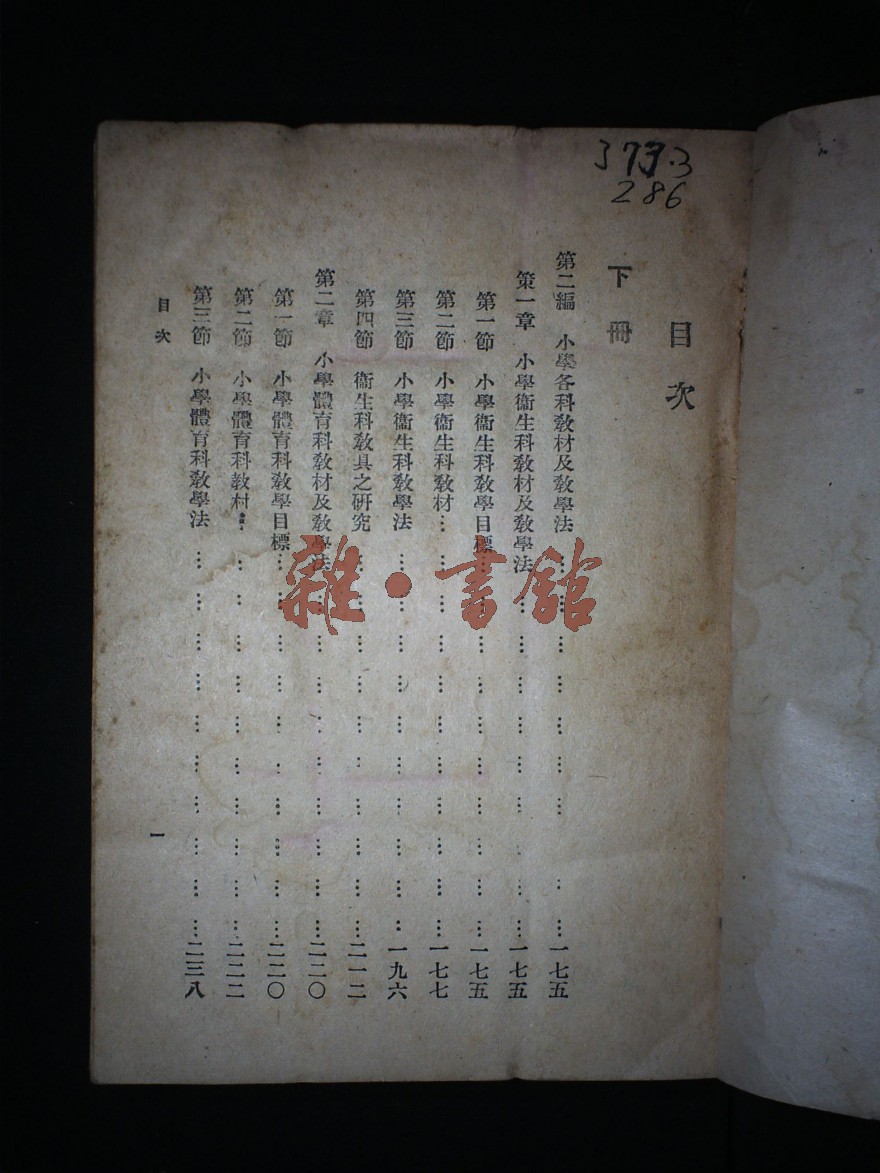 373.3
286
目次
下冊
第二編 小學各科教材及教學法 一七五
策一章 小學衞生科教材及教學法 一七五
第一節 小學衞生科教學目標 一七五
第二節 小學衞生科教材 一七七
第三節 小學衞生科教學法 一九六
第四節 衞生科教具之研究 二一二
第二章 小學體育科教材及教學法 二二〇
第一節 小學體育科教學目標 二二〇
第二節 小學體育科教材 二二二
第三節 小學體育科教學法 二三八
目次
一
雜·書館